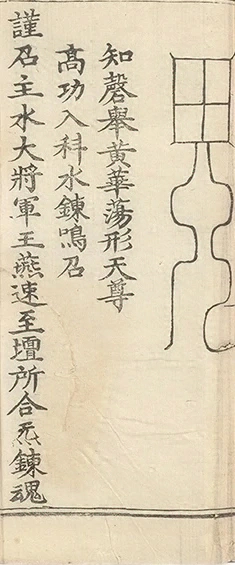 知磬舉黃華蕩形天尊
高功入科水鍊鳴召
謹召主水大將軍王燕速至壇所合炁鍊魂